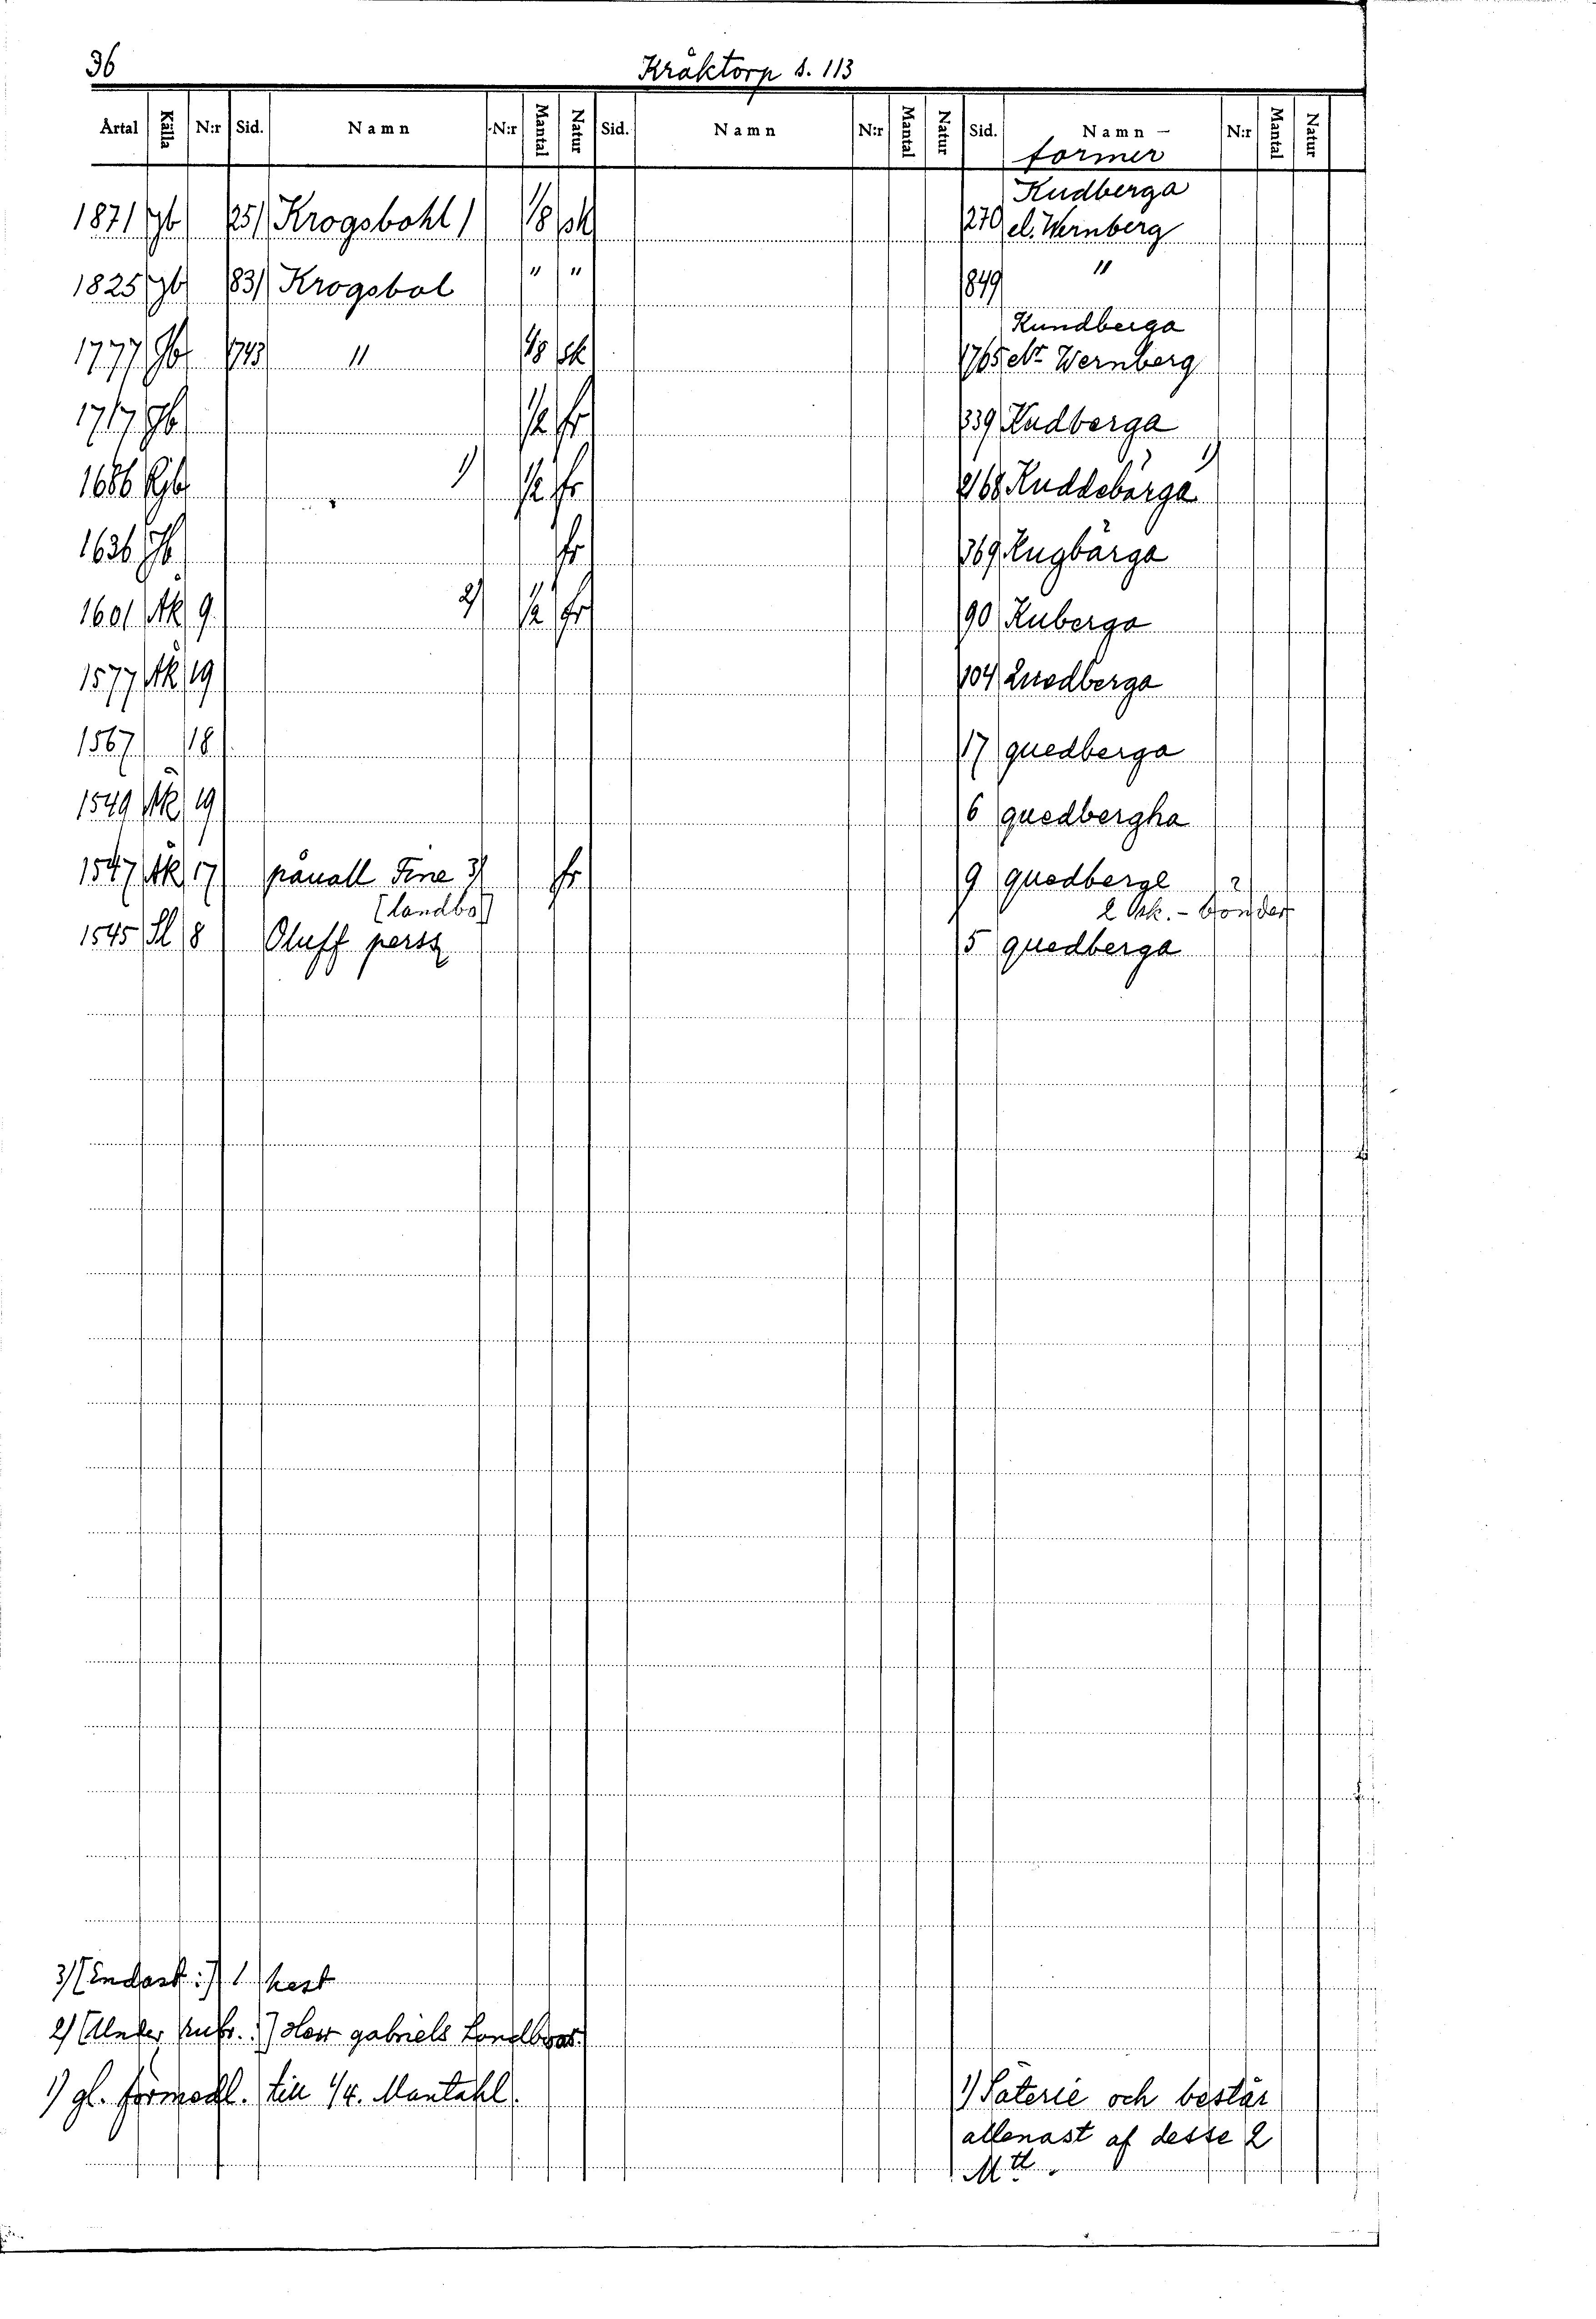 36 Kråktorp s. 113
Årtal Källa N:r Sid. Namn N:r Mantal Natur Sid. Namn N:r Mantal Natur Sid. Namn - N:r Mantal Natur
former
Kudberga
1871 Jb 251 Krogsbohl 1/8 sk 270 el. Wernberg
1825 Jb 831 Krogsbol " " 849 "
Kundberga
1777 Jb 1743 " 1/8 sk 1765 elr Wernberg
1717 Jb 1/2 fr 339 Kudberga
1686 1) 1/2 fr 2168 Kuddebärga 1)
1636 Jb fr 369 Kugbärga
1601 ÄK 9 2) 1/2 fr 90 Kuberga
1577 ÄK 19 104 Quedberga
1567 18 17 quedberga
1549 ÄK 19 6 quedbergha
1547 ÄK 17 påuall Fine 3) fr 9 quedberge 2
[landbo] 2 sk.-bönder
1545 Sl 8 Oluff perss 5 quedberga
3) [Endast:] 1 hest
2) [Under rubr.:] Herr gabriels Landboar.
1) gl. förmedl. till 1/4. Mantahl. 1) Säterie och består
allenast af desse 2
Mtl.